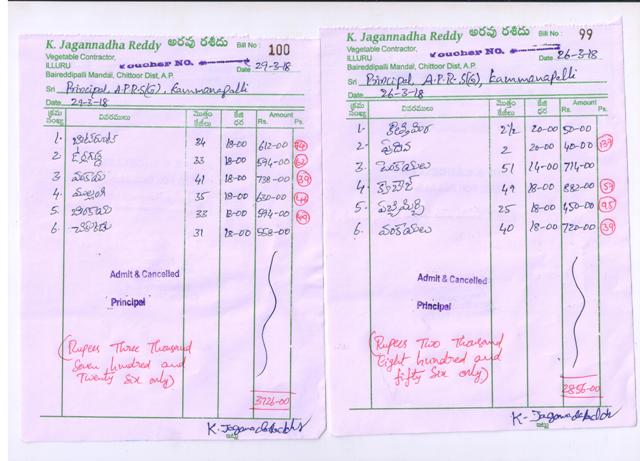 K. Jagannadha Reddy అరపు రశీదు Bill No : 100
Vegetable Contractor,
ILLURU
Voucher NO.
Baireddipalli Mandal, Chittoor Dist, A.P. Date 29-3-18
Sri Principal, A.P.R.S(G), Kammanapalli
Date 29-3-18
క్రమ సంఖ్య వివరములు మొత్తం కేజీలు కేజి ధర Amount Rs. Ps.
1. 34 18-00 612-00
2. 33 18-00 594-00
3. 41 18-00 738-00 39
4. ముల్లంగి 35 18-00 630-00
5. 33 18-00 594-00
6. 31 18-00 558-00
Admit & Cancelled
Principal
(Rupees Three Thousand
Seven hundred and
Twenty Six only)
3726-00
K. Jagannadha Reddy
K. Jagannadha Reddy అరపు రశీదు Bill No : 99
Vegetable Contractor,
ILLURU
Voucher NO.
Baireddipalli Mandal, Chittoor Dist, A.P. Date 26-3-18
Sri Principal, A.P.R.S(G), Kammanapalli
Date 26-3-18
క్రమ సంఖ్య వివరములు మొత్తం కేజీలు కేజి ధర Amount Rs. Ps.
1. 2½ 20-00 50-00
2. పుదీన 2 20-00 40-00 139
3. 51 14-00 714-00
4. 49 18-00 882-00 57
5. పచ్చిమిర్చి 25 18-00 450-00 95
6. వంకాయలు 40 18-00 720-00 39
Admit & Cancelled
Principal
(Rupees Two Thousand
Eight hundred and
fifty Six only)
2856-00
K. Jagannadha Reddy